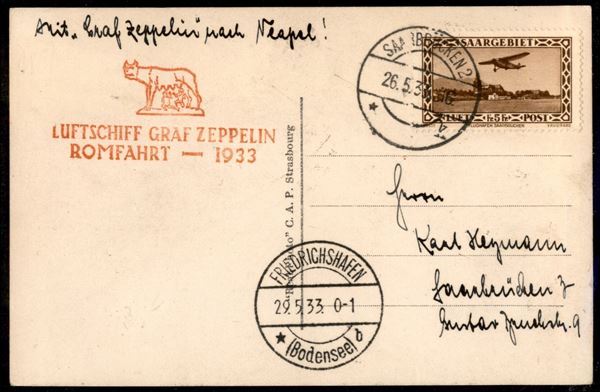 Mit "Graf Zeppelin" nach Neapel!
SAARBRÜCKEN 2
26.5.33
* *
SAARGEBIET
LUFT 5 fr POST
FLUGHAFEN SAARBRÜCKEN
LUFTSCHIFF GRAF ZEPPELIN
ROMFAHRT — 1933
C. A. P. Strasbourg
Herrn
Karl Heymann
Saarbrücken 3
Gustav
FRIEDRICHSHAFEN
29.5.33. 0-1
* (Bodensee) b